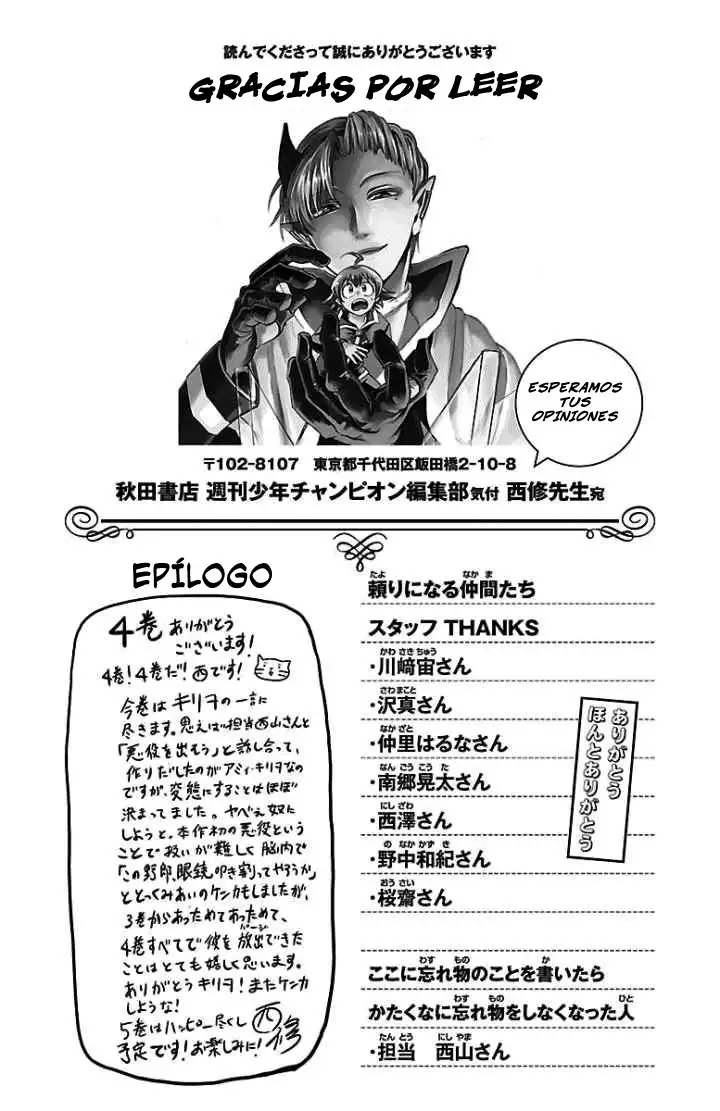 読んでくださって誠にありがとうございます
GRACIAS POR LEER
ESPERAMOS
TUS
OPINIONES
〒102-8107 東京都千代田区飯田橋2-10-8
秋田書店 週刊少年チャンピオン編集部気付 西修先生宛
EPÍLOGO
4巻 ありがとう
ございます!
4巻!4巻だ!西です!
今巻はキリヲの一言に
尽きます。思えば担当西山さんと
「悪役を出もう」と話し合って、
作りだしたのがアミィ・キリヲなの
ですが、変態にすることはほぼ
決まってました。ヤベぇ奴に
しようと。本作初の悪役という
ことで扱いが難しく脳内で
「この野郎、眼鏡叩き割ってやろうか」
ととっくみあいのケンカもしましたが、
3巻からあっためてあっためて、
4巻すべてで彼を放出できた
パージ
ことはとても嬉しく思います。
ありがとうキリヲ!またケンカ
しような!
5巻はハッピー尽くし
予定です!お楽しみに!
西修
たよ なかま
頼りになる仲間たち
スタッフ THANKS
かわさきちゅう
・川﨑宙さん
さわまこと
・沢真さん
なかざと
・仲里はるなさん
なんごうこうた
・南郷晃太さん
にしざわ
・西澤さん
のなかかずき
・野中和紀さん
おうさい
・桜齋さん
ありがとう
ほんとありがとう
わす もの か
ここに忘れ物のことを書いたら
わす もの ひと
かたくなに忘れ物をしなくなった人
たんとう にしやま
・担当 西山さん